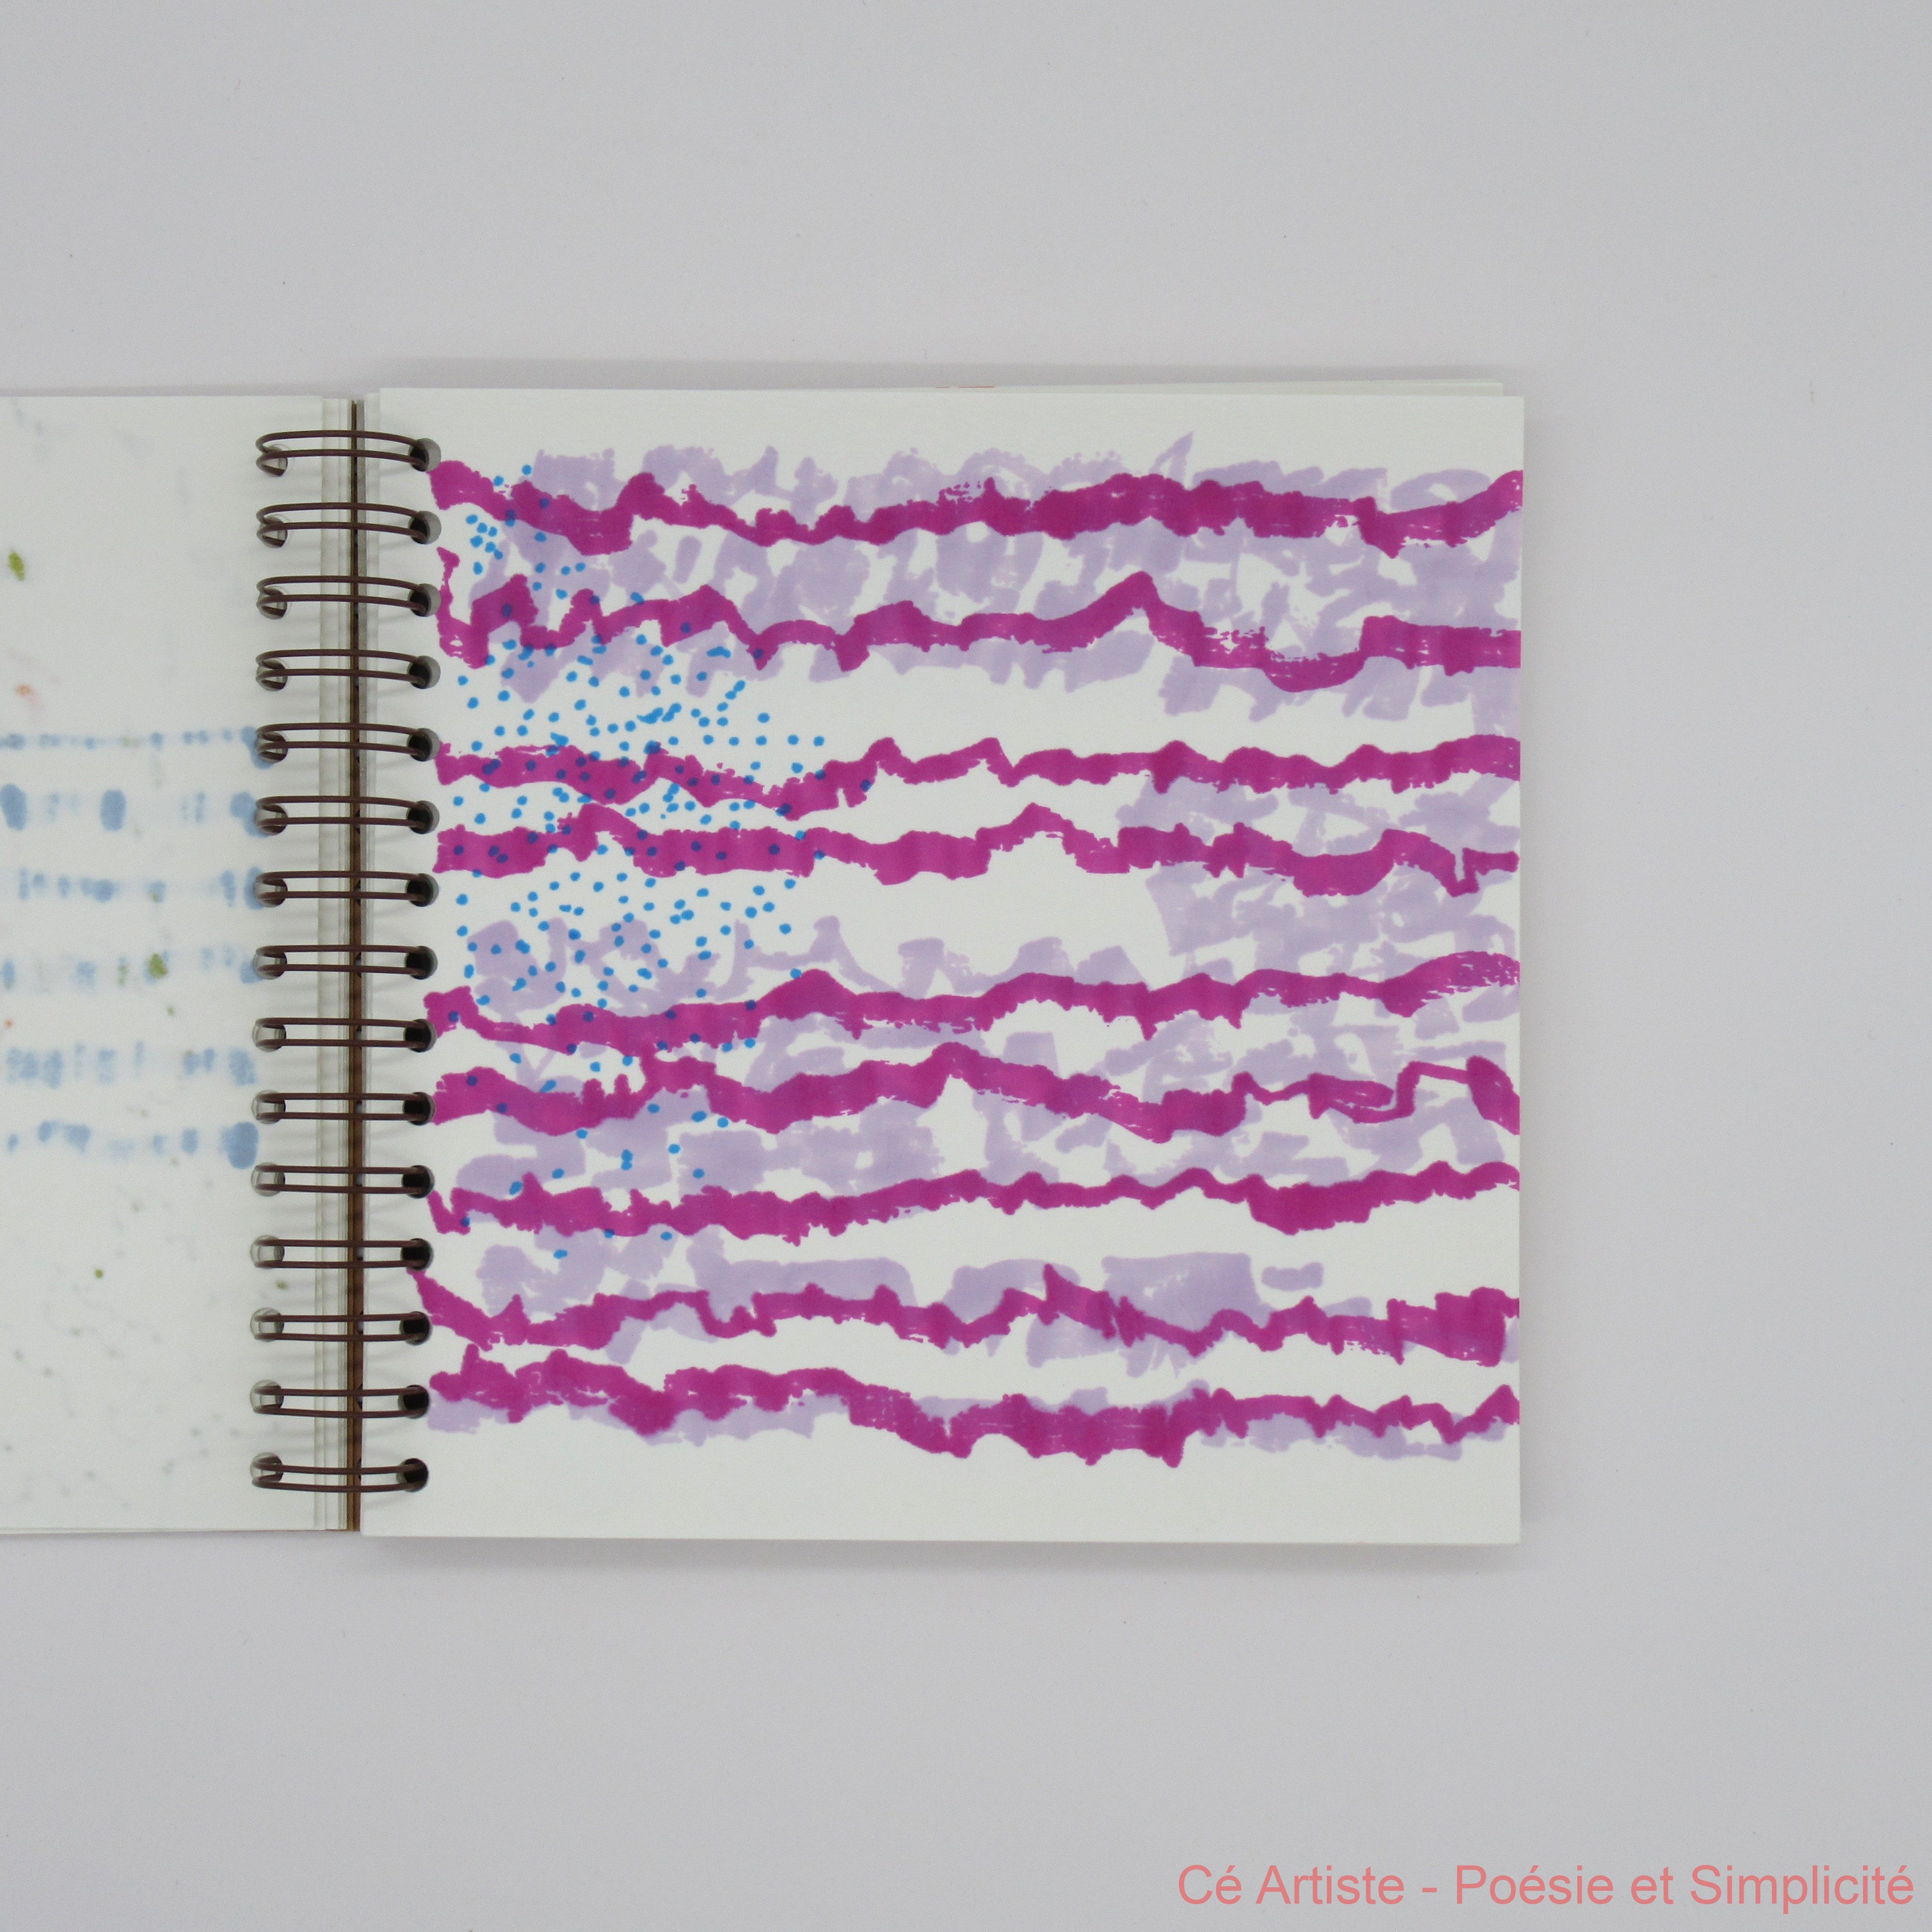 Cé Artiste - Poésie et Simplicité